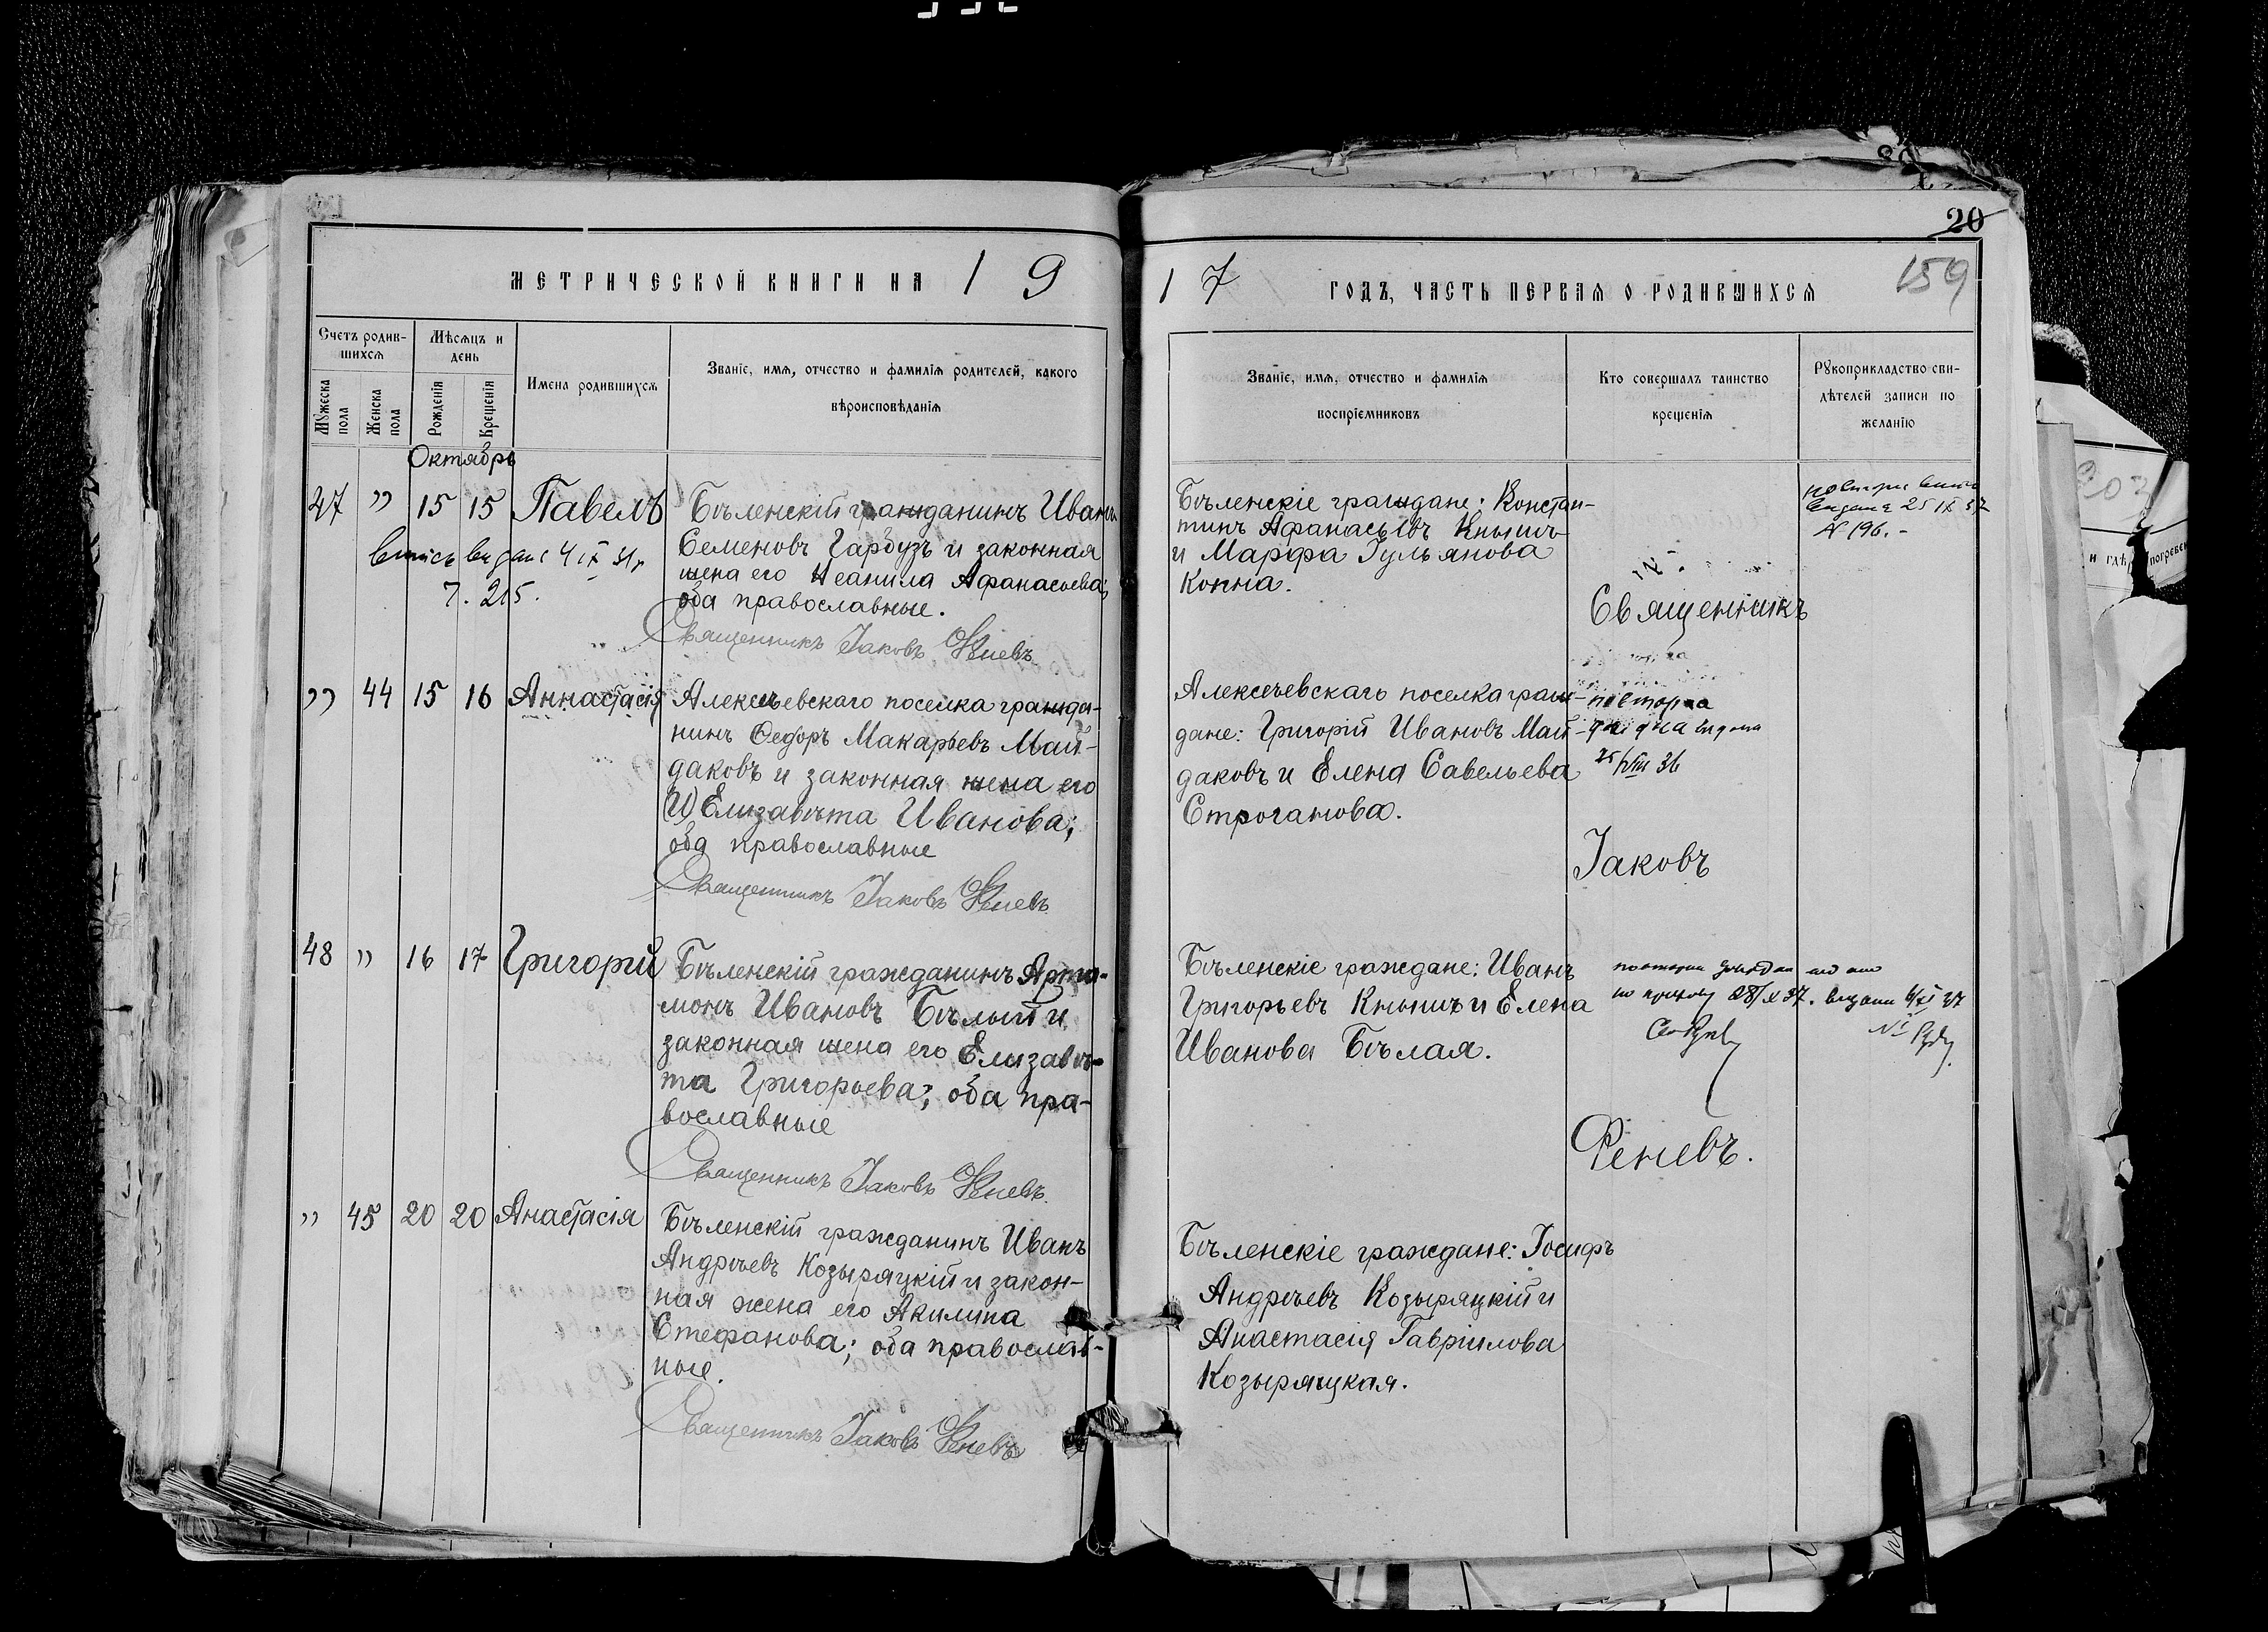 20
159
МЕТРИЧЕСКОЙ КНИГИ НА 19
17 ГОДЪ, ЧАСТЬ ПЕРВАЯ О РОДИВШИХСЯ
Счетъ родив-
шихся
Мѣсяцъ и
день
Мужеска пола
Женска пола
Рожденія
Крещенія
Имена родившихся
Званіе, имя, отчество и фамилія родителей, какого
вѣроисповѣданія
Званіе, имя, отчество и фамилія
воспріемниковъ
Кто совершалъ таинство
крещенія
Рукоприкладство сви-
дѣтелей записи по
желанію
Октябрь
47 " 15 15 Павелъ
Бѣленскій гражданинъ Иванъ
Семеновъ Гарбузъ и законная
жена его Неанила Афанасьева;
оба православные.
Священникъ Іаковъ Реневъ
выпись выдана 4 IX 31 г
7. 215.
Бѣленскіе граждане: Констан-
тинъ Афанасьевъ Кнышъ
и Марфа Іульянова
Конна.
Священникъ
25 IX 37
N 196.-
" 44 15 16 Аннастасія
Алексѣевскаго поселка гражда-
нинъ Ѳедоръ Макарьевъ Май-
даковъ и законная жена его
Елизавѣта Иванова;
оба православные
Священникъ Іаковъ Реневъ
Алексѣевскаго поселка граж-
дане: Григорій Ивановъ Май-
даковъ и Елена Савельева
Строганова.
повторна
25/VIII 36
Іаковъ
48 " 16 17 Григорій
Бѣленскій гражданинъ Арта-
монъ Ивановъ Бѣлый и
законная жена его Елизавѣ-
та Григорьева; оба пра-
вославные
Священникъ Іаковъ Реневъ.
Бѣленскіе граждане: Иванъ
Григорьевъ Кнышъ и Елена
Иванова Бѣлая.
28/X 37.
Реневъ.
" 45 20 20 Анастасія
Бѣленскій гражданинъ Иванъ
Андреевъ Козыряцкій и закон-
ная жена его Акилина
Стефанова; оба православ-
ные.
Священникъ Іаковъ Реневъ
Бѣленскіе граждане: Іосифъ
Андреевъ Козыряцкій и
Анастасія Гавріилова
Козыряцкая.